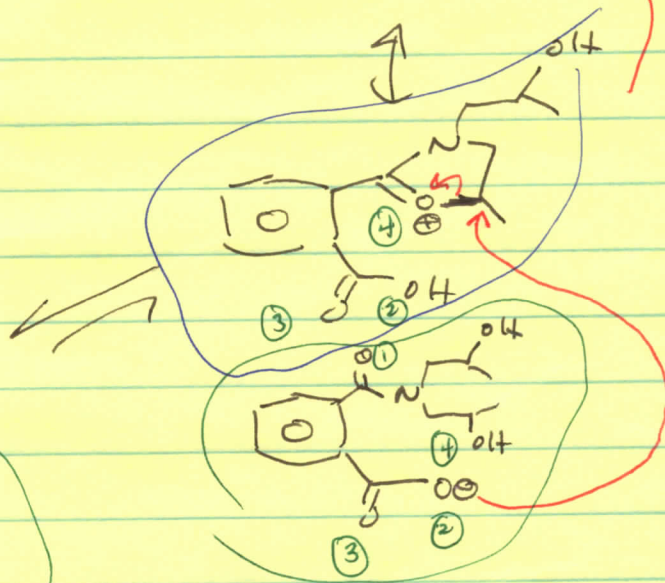 OH
N
O
⊕
④
OH
③
O
②
①
O
OH
N
④
OH
O⊖
O
②
③